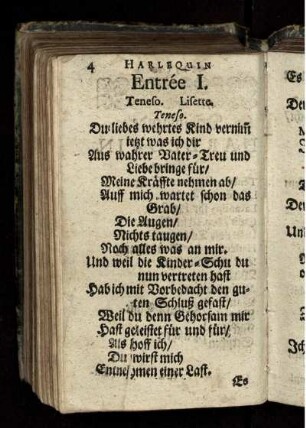 4 HARLEQUIN
Entrée I.
Teneso. Lisette.
Teneso.
Du liebes wehrtes Kind vernim̃
ietzt was ich dir
Aus wahrer Vater-Treu und
Liebe bringe für/
Meine Kräffte nehmen ab/
Auff mich wartet schon das
Grab/
Die Augen/
Nichts taugen/
Noch alles was an mir.
Und weil die Kinder-Schu du
nun vertreten hast
Hab ich mit Vorbedacht den gu-
ten Schluß gefast/
Weil du denn Gehorsam mir
Hast geleistet für und für/
Als hoff ich/
Du wirst mich
einer Last.
Es
Es
De